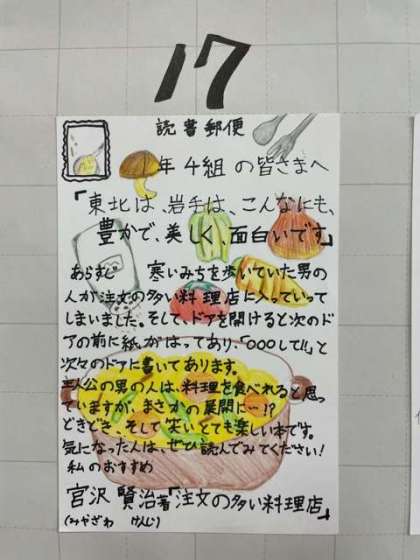 17
読書郵便
年4組の皆さまへ
「東北は、岩手は、こんなにも、
豊かで、美しく、面白いです」
あらすじ 寒いみちを歩いていた男の
人が注文の多い料理店に入っていって
しまいました。そして、ドアを開けると次のド
アの前に紙がはってあり、「〇〇〇して!!」と
次々のドアに書いてあります。
主人公の男の人は、料理を食べれると思っ
ていますが、まさかの展開に…!?
どきどき、そして笑いとても楽しい本です。
気になった人は、ぜひ読んでみてください!
私のおすすめ
宮沢 賢治著「注文の多い料理店」
(みやざわ けんじ)